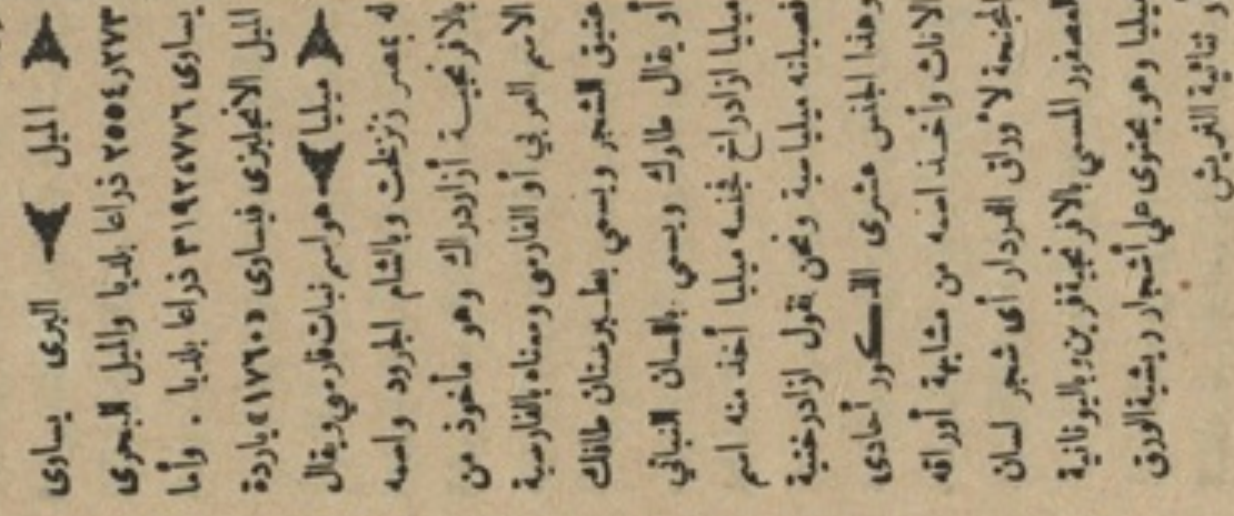 الميل البرى يساوى
٢٧٣ر٢٥٥٤ ذراعا بلديا والميل البحرى
يساوى ذراعا بلديا . وأما
الميل الانجليزى فيساوى «١٧٦٠» ياردة
ميليا هو اسم نبات فارسي ويقال
له بمصر زنزلخت وبالشام الجرود واسمه
بالافرنجية أزادراك وهو مأخوذ من
الاسم العربي أو الفارسى ومعناه بالفارسية
عتيق الشجر ويسمي بطبرستان طاقك
أو يقال طاوك ويسمي باللسان النباتي
ميليا ازادراخ فجنسه ميليا أخذ منه اسم
فصيلته ميلياسية ونحن نقول ازادرختية
وهذا الجنس عشرى الذكور أحادى
الاناث وأخذ اسمه من مشابهة أوراقه
المجنحة لأوراق الدردار أى شجر لسان
العصفور المسمي بالافرنجية فرين وباليونانية
ميليا وهو يحتوى علي أشجار ريشية الورق
و ثنائية التريش